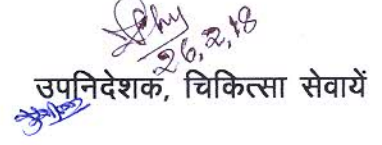 26,2,18
उपनिदेशक, चिकित्सा सेवायें